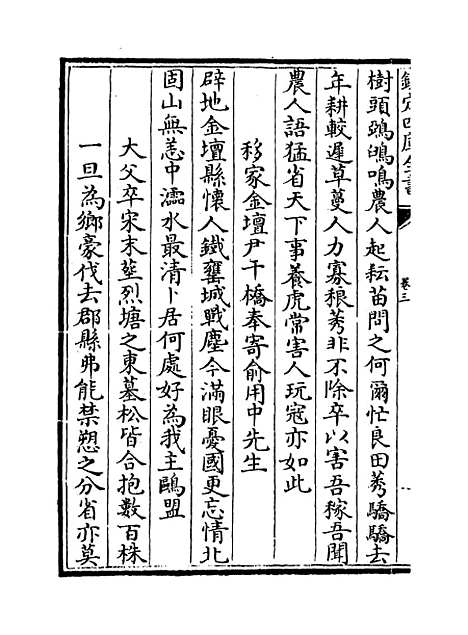 欽定四庫全書
卷三
樹頭鵓鴣鳴農人起耘苗問之何爾忙良田莠驕驕去
年耕較遲草蔓人力寡稂莠非不除卒以害吾稼吾聞
農人語猛省天下事養虎常害人玩寇亦如此
移家金壇尹干橋奉寄俞用中先生
辟地金壇縣懷人鐵甕城戰塵今滿眼憂國更忘情北
固山無恙中濡水最清卜居何處好為我主鷗盟
大父卒宋末塟烈塘之東墓松皆合抱數百株
一旦為鄉豪伐去郡縣弗能禁愬之分省亦莫